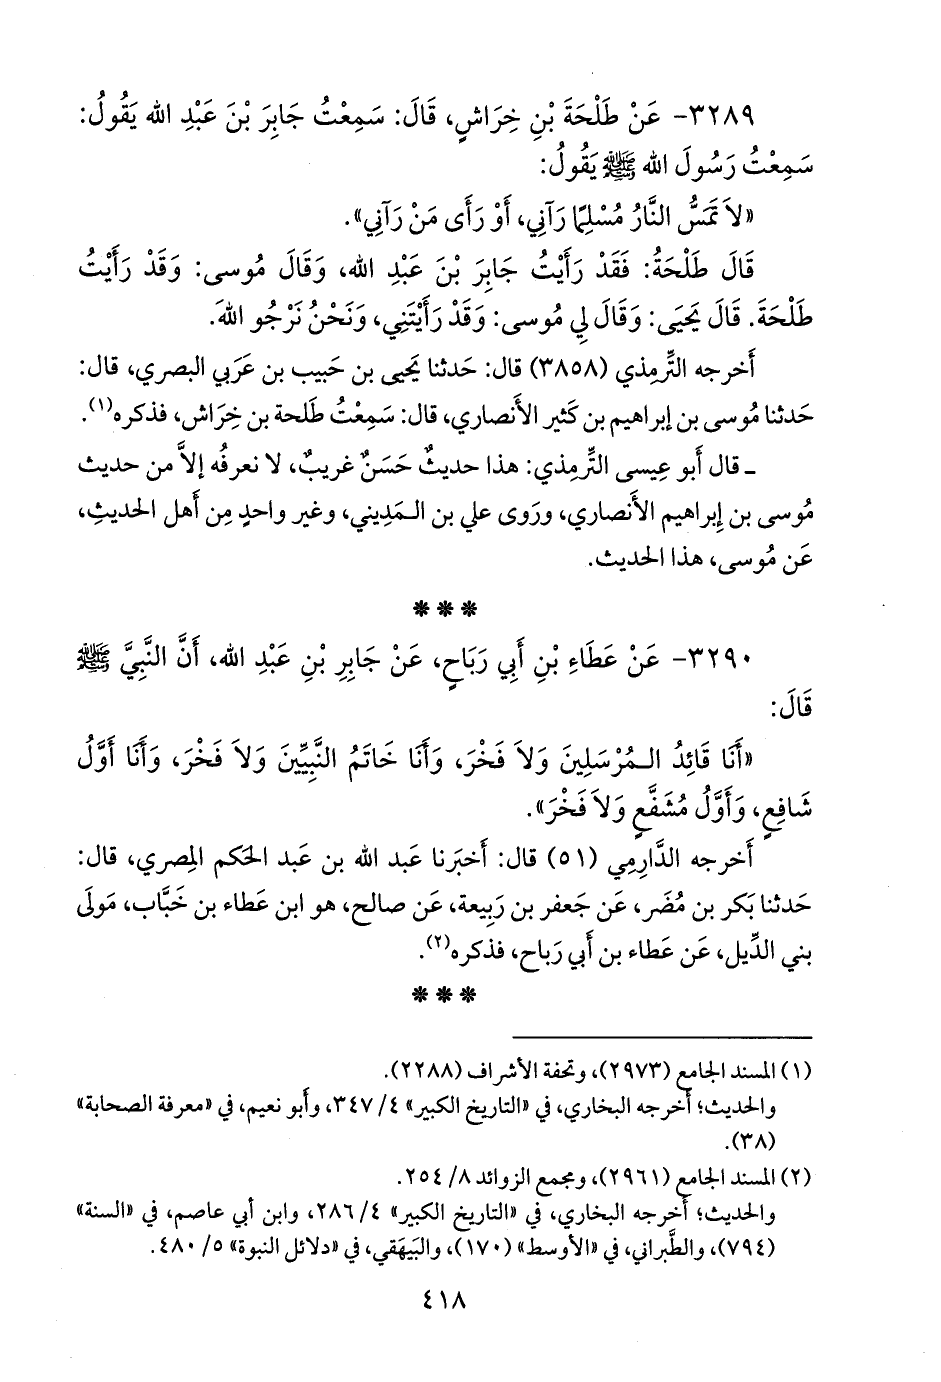 ٣٢٨٩- عَنْ طَلْحَةَ بْنِ خِرَاشٍ، قَالَ: سَمِعْتُ جَابِرَ بْنَ عَبْدِ الله يَقُولُ:
سَمِعْتُ رَسُولَ الله ﷺ يَقُولُ:
«لاَ تَمَسُّ النَّارُ مُسْلِمًا رَآنِي، أَوْ رَأَى مَنْ رَآنِي».
قَالَ طَلْحَةُ: فَقَدْ رَأَيْتُ جَابِرَ بْنَ عَبْدِ الله، وَقَالَ مُوسى: وَقَدْ رَأَيْتُ
طَلْحَةَ. قَالَ يَحيَى: وَقَالَ لِي مُوسى: وَقَدْ رَأَيْتَنِي، وَنَحْنُ نَرْجُو اللهَ.
أَخرجه التِّرمِذي (٣٨٥٨) قال: حَدثنا يَحيى بن حَبيب بن عَرَبي البصري، قال:
حَدثنا مُوسى بن إبراهيم بن كَثير الأَنصاري، قال: سَمِعْتُ طَلحة بن خِرَاش، فذكره(١).
ـ قال أَبو عِيسى التِّرمِذي: هذا حديثٌ حَسَنٌ غريبٌ، لا نعرفُه إلاَّ من حديث
مُوسى بن إِبراهيم الأَنصاري، ورَوى علي بن الـمَدِيني، وغير واحدٍ مِن أَهل الحديثِ،
عَن مُوسى، هذا الحديث.
***
٣٢٩٠- عَنْ عَطَاءِ بْنِ أَبِي رَبَاحٍ، عَنْ جَابِرِ بْنِ عَبْدِ الله، أَنَّ النَّبِيَّ ﷺ
قَالَ:
«أَنَا قَائِدُ الـمُرْسَلِينَ وَلاَ فَخْرَ، وَأَنَا خَاتَمُ النَّبِيِّينَ وَلاَ فَخْرَ، وَأَنَا أَوَّلُ
شَافِعٍ، وَأَوَّلُ مُشَفَّعٍ وَلاَ فَخْرَ».
أَخرجه الدَّارِمي (٥١) قال: أَخبَرنا عَبد الله بن عَبد الحَكم المِصري، قال:
حَدثنا بَكر بن مُضَر، عَن جَعفر بن رَبِيعة، عَن صالح، هو ابن عَطاء بن خَبَّاب، مَولَى
بني الدِّيل، عَن عَطاء بن أَبي رَباح، فذكره(٢).
***
(١) المسند الجامع (٢٩٧٣)، وتحفة الأشراف (٢٢٨٨).
والحديث؛ أخرجه البخاري، في «التاريخ الكبير» ٤/ ٣٤٧، وأَبو نعيم، في «معرفة الصحابة»
(٣٨).
(٢) المسند الجامع (٢٩٦١)، ومجمع الزوائد ٨/ ٢٥٤.
والحديث؛ أَخرجه البخاري، في «التاريخ الكبير» ٤/ ٢٨٦، وابن أبي عاصم، في «السنة»
(٧٩٤)، والطَّبراني، في «الأوسط» (١٧٠)، والبَيهَقي، في «دلائل النبوة» ٥/ ٤٨٠.
٤١٨